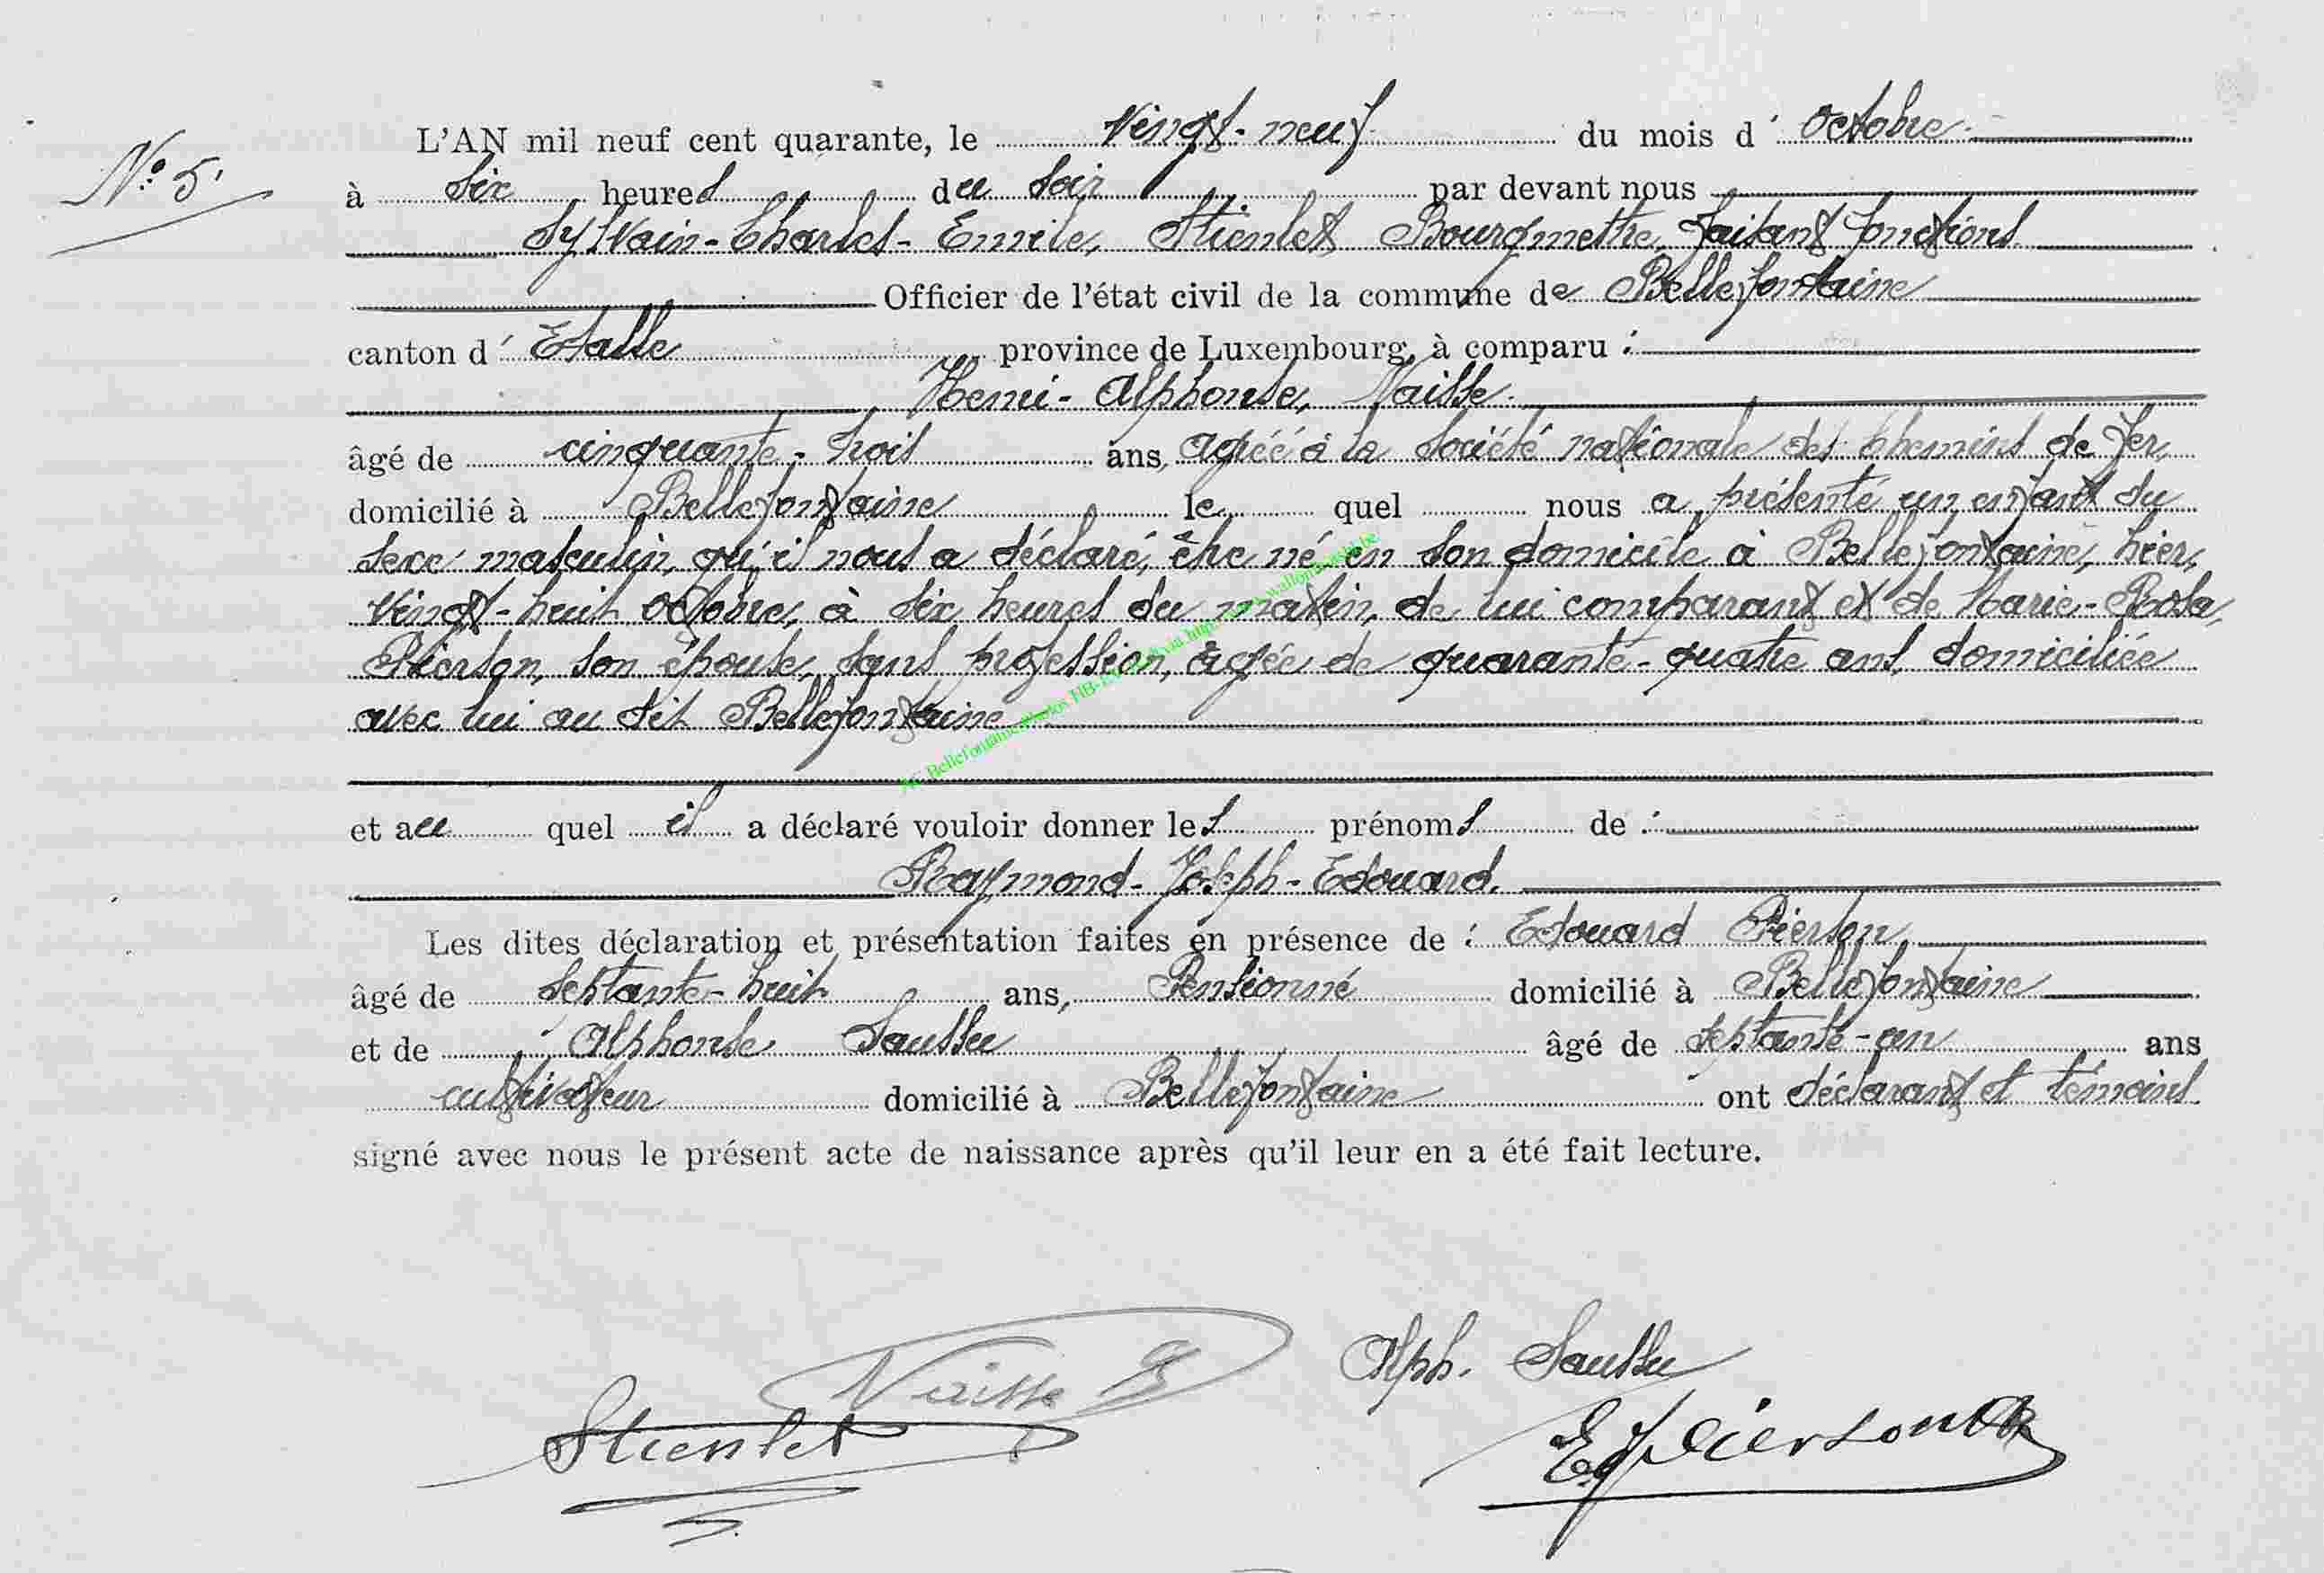 L'AN mil neuf cent quarante, le vingt-neuf du mois d' Octobre
N° 5.
à six heures du soir par devant nous
Sylvain-Charles-Emile, Stienlet Bourgmestre, faisant fonctions
Officier de l'état civil de la commune de Bellefontaine
canton d' Etalle province de Luxembourg, à comparu :
Henri-Alphonse, Naisse.
âgé de cinquante-trois ans, agréé à la société nationale des chemins de fer,
domicilié à Bellefontaine le quel nous a présenté un enfant du
sexe masculin, qu'il nous a déclaré, être né en son domicile à Bellefontaine, hier,
vingt-huit octobre, à six heures du matin, de lui comparant et de Marie-Rosa,
Pierson, son épouse, sans profession, âgée de quarante-quatre ans, domiciliée
avec lui au dit Bellefontaine
et au quel il a déclaré vouloir donner les prénoms de :
Raymond-Joseph-Edouard.
Les dites déclaration et présentation faites en présence de : Edouard Pierson,
âgé de septante-huit ans, Pensionné domicilié à Bellefontaine
et de Alphonse Saussu âgé de septante-un ans
cultivateur domicilié à Bellefontaine ont déclarant et témoins
signé avec nous le présent acte de naissance après qu'il leur en a été fait lecture.
Naisse
Alph. Saussu
Stienlet
E. Pierson